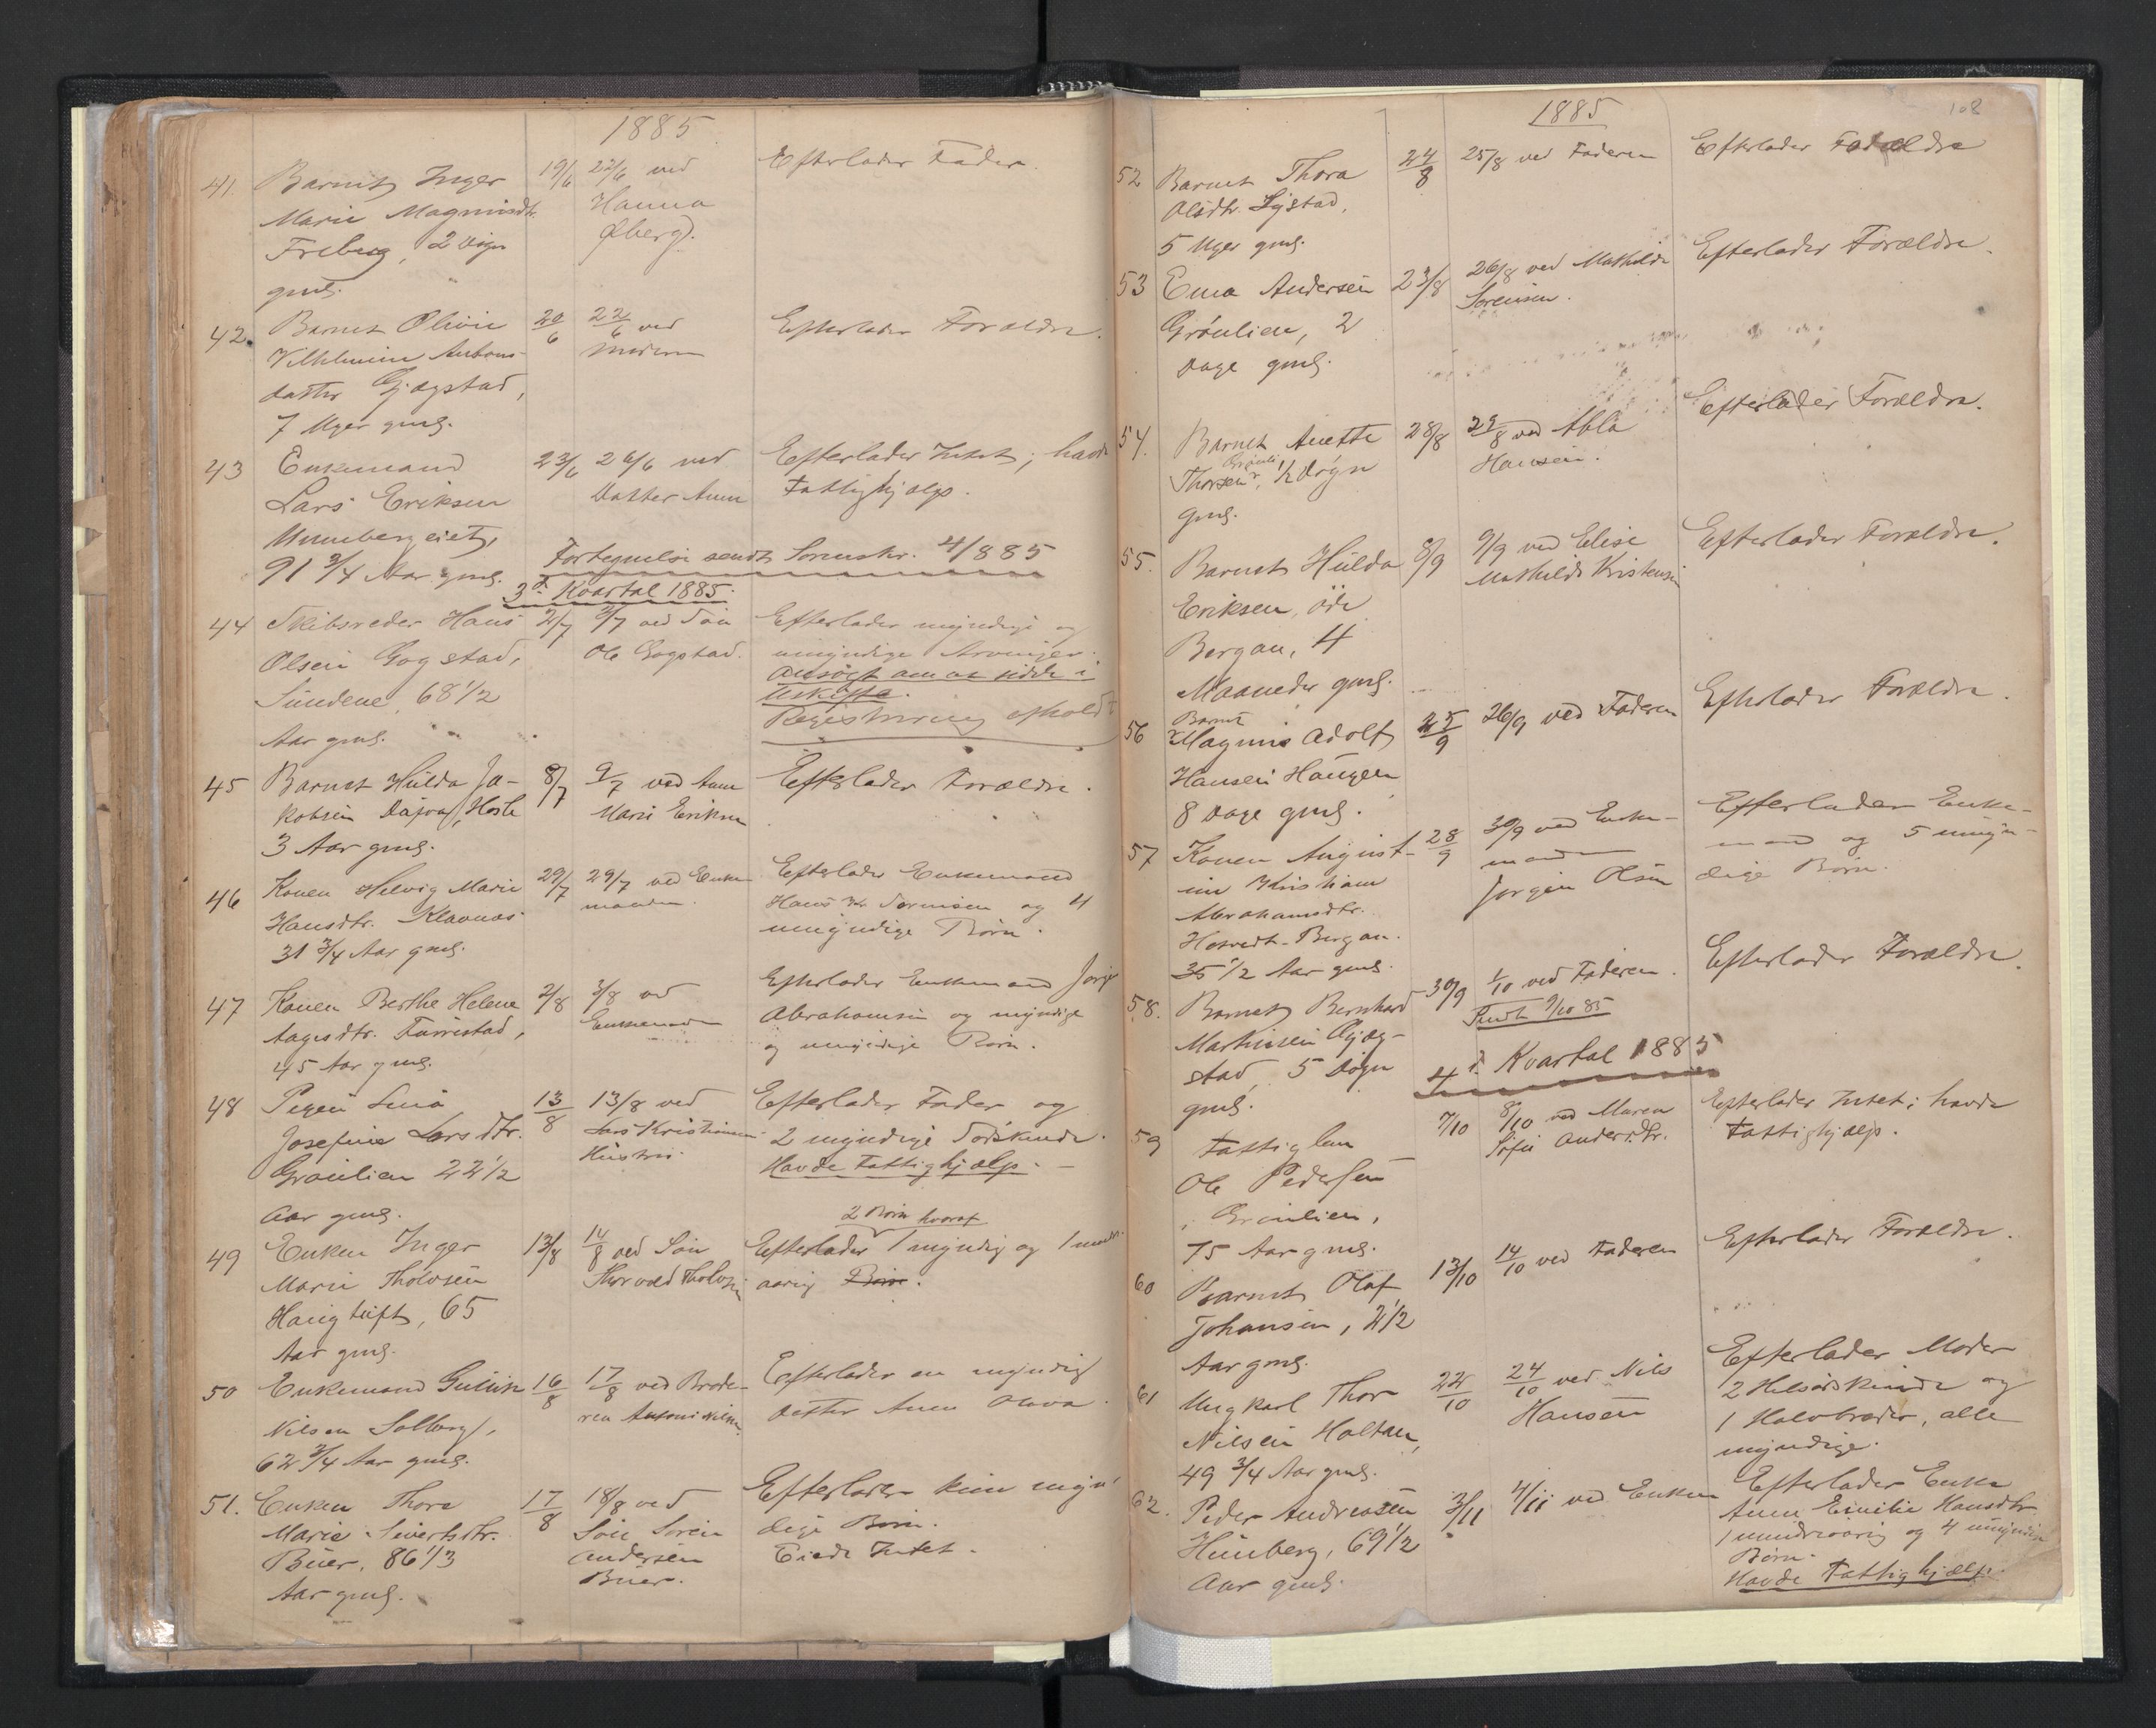 1885
41. Barnet Inger
Marie Magnusdtr.
Freberg, 2 Døgn
gml.
19/6
22/6 ved
Hanna
Øberg.
Efterlader Fader.
42. Barnet Olivie
Vilhelmine Antons-
datter Gjøgstad,
7 Uger gml.
20/6
22/6 ved
Moderen
Efterlader Forældre.
43 Enkemand
Lars Eriksen
Unnebergeiet,
91 3/4 Aar gml.
23/6
26/6 ved
Datter Anne
Efterlader Intet; havde
Fattighjælp.
Fortegnelse sendt Sorenskr. 4/885
3d. Kvartal 1885.
44 Skibsreder Hans
Olsen Gogstad,
Sundene, 68 1/2
Aar gml.
2/7
3/7 ved Søn
Ole Gogstad.
Efterlader myndige og
umyndige Arvinger.
Ansøgt om at sidde i
Uskifte.
Registrering afholdt
45 Barnet Hulda Ja-
kobsen Hasle
3 Aar gml.
8/7
9/7 ved Anne
Marie Eriksen
Efterlader Forældre.
46 Konen Helvig Marie
Hansdtr. Klavnæs
31 3/4 Aar gml.
29/7
29/7 ved Enke-
manden.
Efterlader Enkemand
Hans Kr. Sørensen og 4
umyndige Børn.
47 Konen Berthe Helene
Aagesdtr. Furustad,
45 Aar gml.
2/8
3/8 ved
Enkemanden
Efterlader Enkemand
Abrahamsen og myndige
og umyndige Børn.
48 Pigen Lina
Josefine Larsdtr.
Grønlien 22 1/2
Aar gml.
13/8
13/8 ved
Lars Kristiansens
Hustru.
Efterlader Fader og
2 myndige Sødskende.
Havde Fattighjælp. –
49 Enken Inger
Marie Tholvsen
Haugtuft, 65
Aar gml.
13/8
14/8 ved Søn
Thorvald Tholvsen
2 Børn hvoraf
Efterlader 1 myndig og 1 mindre-
aarig Børn.
50 Enkemand Gullik
Nilsen Solberg,
62 3/4 Aar gml.
16/8
17/8 ved Brode-
ren Antoni Nilsen.
Efterlader en myndig
Datter Anne Olava.
51. Enken Thore
Marie Sivertsdtr.
Buer, 86 1/3
Aar gml.
17/8
18/8 ved
Søn Søren
Andersen
Buer.
Efterlader kun myn-
dige Børn.
Eiede Intet.
108
1885
52 Barnet Thora
Olsdtr. Lystad,
5 Uger gml.
24/8
25/8 ved Faderen
Efterlader Forældre
53 Ema Andersen
Grønlien, 2
Dage gml.
23/8
26/8 ved Mathilde
Sørensen.
Efterlader Forældre.
54. Barnet Anette
Thorsen Grønli, 1/2 Døgn
gml.
28/8
29/8 ved Abla
Hansen.
Efterlader Forældre.
55. Barnet Hulda
Eriksen, øde
Bergan, 4
Maaneder gml.
8/9
9/9 ved Elise
Mathilde Kristensen
Efterlader Forældre.
56 Barnet
Magnus Adolf
Hansen Haugen
8 Dage gml.
25/9
26/9 ved Faderen
Efterlader Forældre.
57 Konen August-
ine Kristiane
Abrahamsdtr.
Hasvedt-Bergan.
35 1/2 Aar gml.
28/9
30/9 ved Enke-
manden
Jørgen Olsen
Efterlader Enke-
mand og 5 umyn-
dige Børn.
58. Barnet Bernhard
Martinsen Gjøg-
stad, 5 Døgn
gml.
30/9
1/10 ved Faderen.
Sendt 9/10 85
Efterlader Forældre.
4d. Kvartal 1885
59 Fattiglem
Ole Pedersen
i Grønlien,
75 Aar gml.
7/10
8/10 ved Maren
Sofie Andersdtr.
Efterlader Intet; havde
Fattighjælp.
60 Barnet Olaf
Johansen, 2 1/2
Aar gml.
13/10
14/10 ved Faderen
Efterlader Forældre.
61 Ungkarl Thor
Nilsen Holtan,
49 3/4 Aar gml.
22/10
24/10 ved Nils
Hansen
Efterlader Moder
2 Helsødskende og
1 Halvbroder, alle
myndige.
62. Peder Andreasen
Huneberg, 69 1/2
Aar gml.
3/11
4/11 ved Enken
Efterlader Enke
Anne Emilie Hansdtr.
1 mindreaarig og 4 umyndige
Børn.
Havde Fattighjælp.